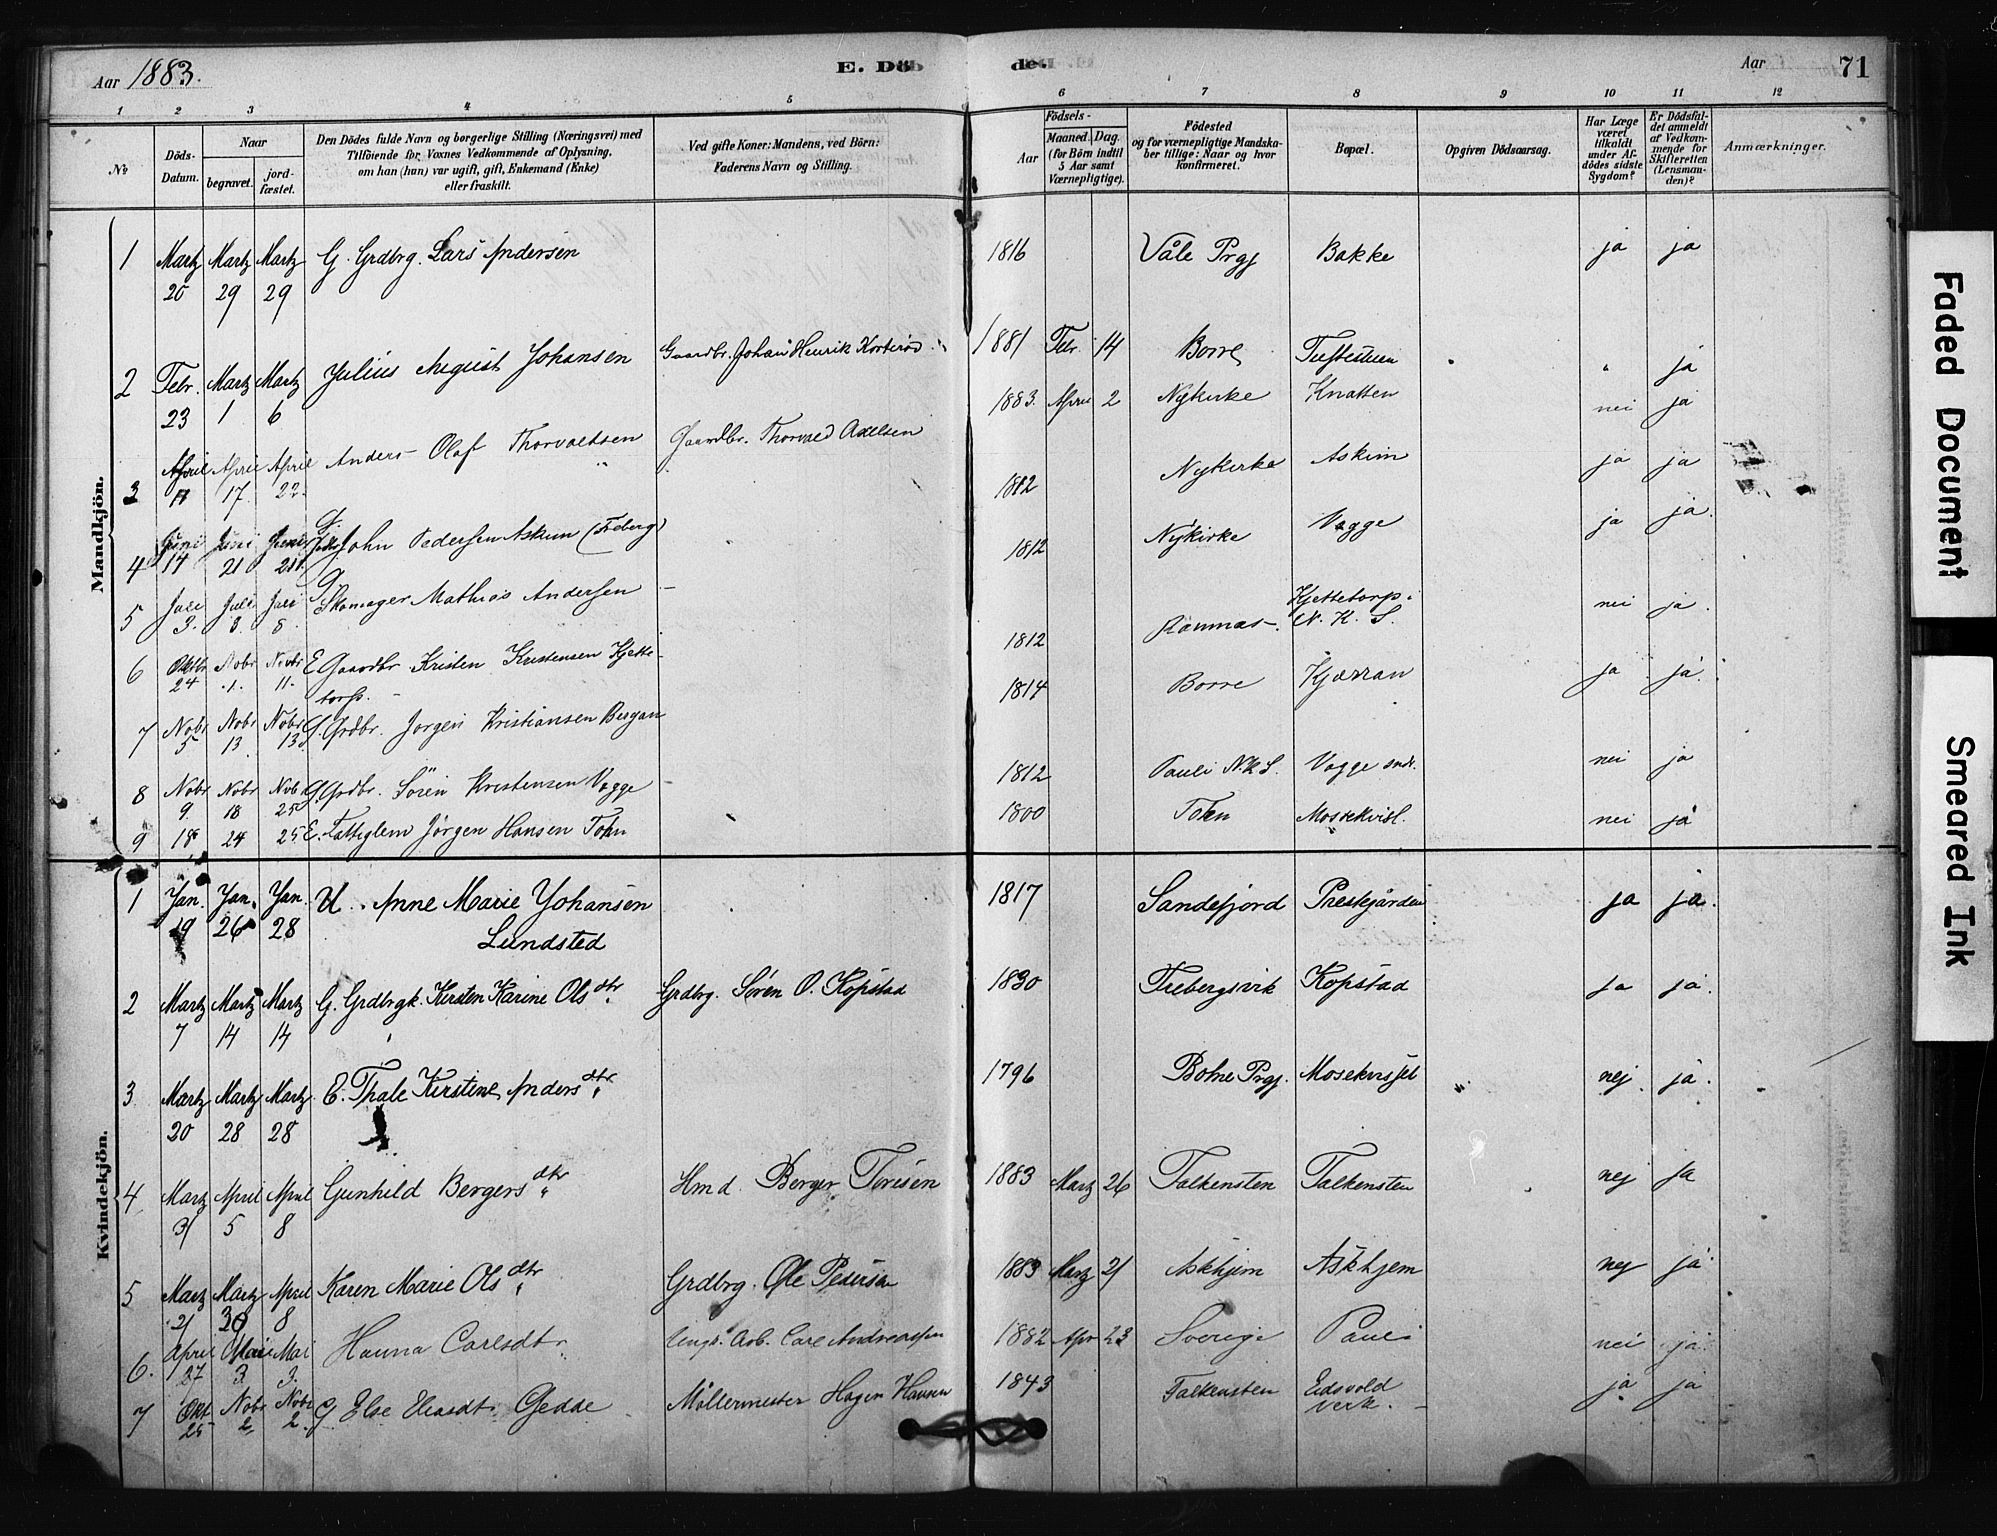 Aar 1883.
E. Dö
de.
Aar
71
1 2 3 4 5 6 7 8 9 10 11 12
No
Döds-Datum.
Naar
begravet.
jord-fæstet.
Den Dödes fulde Navn og borgerlige Stilling (Næringsvei) med
Tilföiende for Voxnes Vedkommende af Oplysning,
om han (hun) var ugift, gift, Enkemand (Enke)
eller fraskilt.
Ved gifte Koner: Mandens, ved Börn:
Faderens Navn og Stilling.
Födsels-
Aar
Maaned. Dag.
(for Börn indtil
5 Aar samt
Værnepligtige).
Födested
og for værnepligtige Mandska-
ber tillige: Naar og hvor
konfirmeret.
Bopæl.
Opgiven Dödsaarsag.
Har Læge
været
tilkaldt
under Af-
dödes sidste
Sygdom?
Er Dödsfal-
det anmeldt
af Vedkom-
mende for
Skifteretten
(Lensman-
den)?
Anmærkninger.
Mandkjön.
1 Martz 20 Martz 29 Martz 29 G. Grdbrg. Lars Andersen 1816 Våle Prgj Bakke ja ja
2 Febr. 23 Martz 1 Martz 6 Julius August Johansen Gaardbr. Johan Henrik 1881 Febr. 14 Borre ja
3 April April 17 April 22 Anders Olaf Thorvaldsen Gaardbr. Thorvald Axelsen 1883. April 2 Nykirke Knatten nei ja
4 Juni 14 Juni 21 Juni John Pedersen Askim 1812 Nykirke Askim ja ja
5 Juli 3. Juli 3. Juli 8 Skomager Mathias Andersen 1812 Nykirke Vagge ja ja.
6 Oktbr 24 Nobr 1. Novbr 11. E Gaardbr Kristen Kristensen Kjette-
torp. 1812 Ramnas Kjettetorp i
N. K. S. nei ja.
7 Nobr 5 Nobr 13 Nobr 13 G. Grdbr. Jorgen Kristiansen Bergan 1814 Borre Kjærran ja ja.
8 Nobr 9 Nobr 18 Nobr 25 G. Grdbr. Sören Kristensen Vagge 1812 Pauli N.K.S. Vagge sndr. nei ja
9 18 24 25 E. Fattiglem Jörgen Hansen Toln 1800 Toln Mossekvisl. nei ja
Kvindekjön.
1 Jan. 19 Jan. 26 Jan. 28 U. Anne Marie Johansen
Lundsted 1817 Sandefjord Prestgården ja ja.
2 Martz 7 Martz 14 Martz 14 G. Grdbrgk. Kirsten Karine Olsdtr. Grdbrg. Sören O. Kopstad 1830 Frebergsvik Kopstad ja ja.
3 Martz 20 Martz 28 Martz 28 E. Thale Kirstine Andersdtr. 1796 Botne Prgj. nej ja.
4 Martz 31 April 5 April 8 Gunhild Bergersdtr. Hmd. Berger Torisen 1883 Martz 26 Falkensten Falkensten nej ja
5 Martz 21 Martz 30 April 8 Karen Marie Olsdtr. Grdbrg. Ole Pedersen 1883 Martz 21 Askhjem Askhjem nej ja
6. April 27 Mai 3. Mai 3. Hanna Carlsdtr. Ungk. Arb. Carl Andreassen 1882 Apr 23 Sverige Pauli nei ja.
7 Okt 25 Nobr 2 Nobr 2. G Else Eliasdt. Gedde Møllermester Hagen Hansen 1843 Falkensten Eidsvold
Verk. ja ja
Faded Document
Smeared Ink